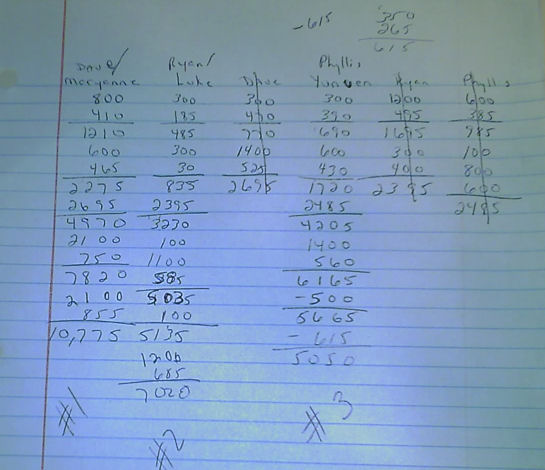 -615 350
265
615
Dave/ Ryan/ Phyllis
Maryanne Luke Dave Yunven Ryan Phyllis
800 300 300 300 1200 600
410 185 490 390 495 385
1210 485 790 690 1695 985
600 300 1400 600 300 100
465 30 525 430 400 800
2275 835 2695 1720 2395 600
2695 2395 2485 2485
4970 3230 4205
2100 100 1400
750 1100 560
7820 585 6165
2100 5035 -500
855 100 5665
10,775 5135 -615
1200 5050
685
7020
#1 #2 #3